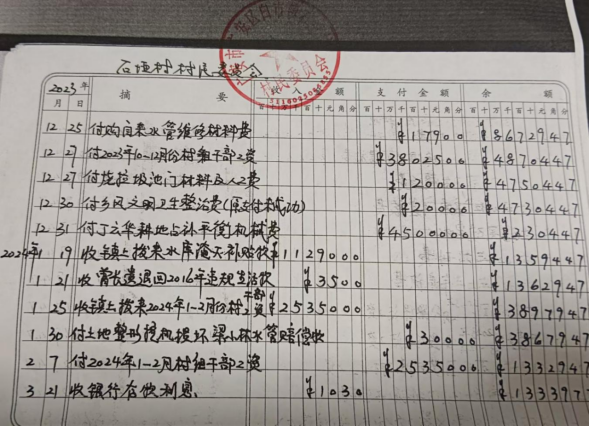 石垭村村民委员会
村民委员会
2023年 摘要 收入金额 支付金额 余额
月 日 百十万千百十元角分 百十万千百十元角分 百十万千百十元角分
12 25 付购自来水管维修材料费 ¥17900 ¥8672947
12 27 付2023年10-12月份村组干部工资 ¥3802500 ¥4870447
12 27 付垃圾池门材料及人工费 ¥120000 ¥4750447
12 30 付乡风文明卫生整治费 ¥20000 ¥4730447
12 31 付 耕地占补平衡机械费 ¥4500000 ¥230447
2024年1 19 收镇上拨来水库淹天补贴款 ¥1129000 ¥1359447
1 21 收 退回2016年违规生活款 ¥3500 ¥1362947
1 25 收镇上拨来2024年1-2月份村干部工资 ¥2535000 ¥3897947
1 30 付土地整形挖机损坏梁小林水管赔偿款 ¥30000 ¥3867947
2 7 付2024年1-2月村组干部工资 ¥2535000 ¥1332947
3 21 收银行存款利息 ¥1030 ¥1333977